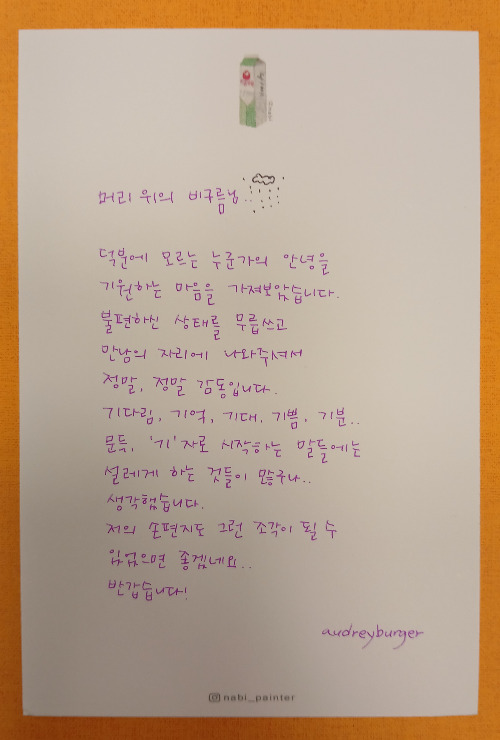 머리 위의 비구름님..
덕분에 모르는 누군가의 안녕을
기원하는 마음을 가져보았습니다.
불편하신 상태를 무릅쓰고
만남의 자리에 나와주셔서
정말, 정말 감동입니다.
기다림, 기억, 기대, 기쁨, 기분..
문득, '기'자로 시작하는 말들에는
설레게 하는 것들이 많구나..
생각했습니다.
저의 손편지도 그런 조각이 될 수
있었으면 좋겠네요..
반갑습니다!
audreyburger
nabi_painter